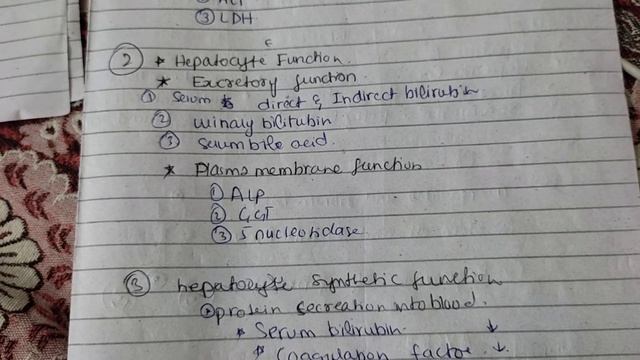 ③ LDH
② * Hepatocyte Function.
* Excretory function.
① Serum direct & Indirect bilirubin
② urinary bilirubin
③ Serum bile acid.
* Plasma membrane function
① ALP
② GGT
③ 5 nucleotidase
③ hepatocyte Synthetic function
protein secreation into blood.
* Serum bilirubin. ↓
* Coagulation factor ↓.